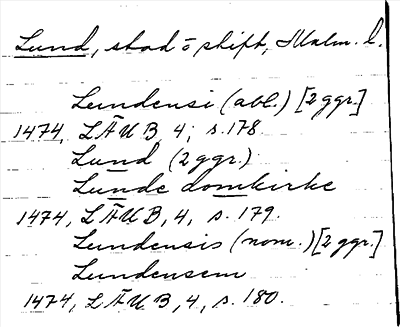 Lund, stad o stift, Malm. l.
Lundensi (abl.) [2 ggr.]
1474, LÄUB 4, s. 178
Lund (2 ggr.)
Lunde domkirke
1474, LÄUB, 4, s. 179.
Lundensis (nom.) [2 ggr.]
Lundensem
1474, LÄUB, 4, s. 180.